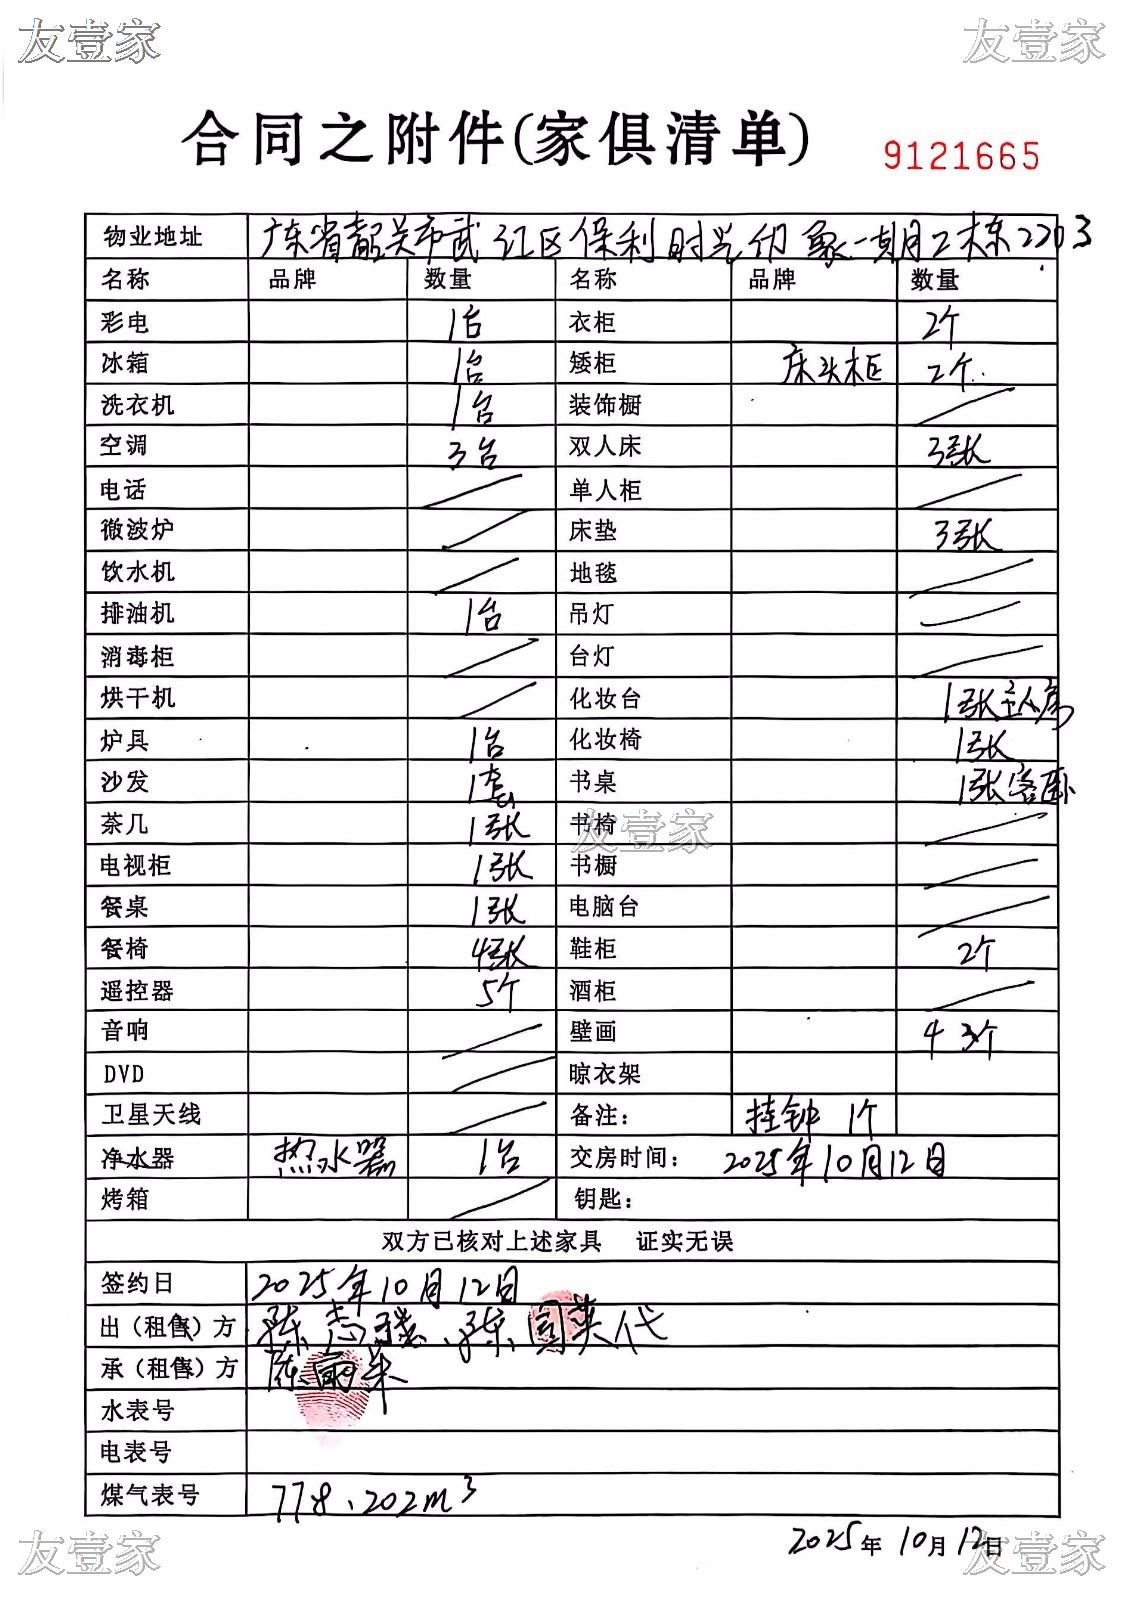 友壹家 友壹家
合同之附件(家俱清单) 9121665
物业地址 广东省韶关市武江区保利时光印象一期2栋2203
名称 品牌 数量 名称 品牌 数量
彩电 1台 衣柜 2个
冰箱 1台 矮柜 床头柜 2个
洗衣机 1台 装饰橱
空调 3台 双人床 3张
电话 单人柜
微波炉 床垫 3张
饮水机 地毯
排油机 1台 吊灯
消毒柜 台灯
烘干机 化妆台 1张主人房
炉具 1台 化妆椅 1张
沙发 1套 书桌 1张客卧
茶几 1张 书椅
友壹家
电视柜 1张 书橱
餐桌 1张 电脑台
餐椅 4张 鞋柜 2个
遥控器 5个 酒柜
音响 壁画 4 3个
DVD 晾衣架
卫星天线 备注: 挂钟 1个
净水器 热水器 1台 交房时间: 2025年10月12日
烤箱 钥匙:
双方已核对上述家具 证实无误
签约日 2025年10月12日
出(租售)方 陈志 、陈国英代
承(租售)方 陈丽
水表号
电表号
煤气表号 778.202m³
2025年10月12日
友壹家 友壹家